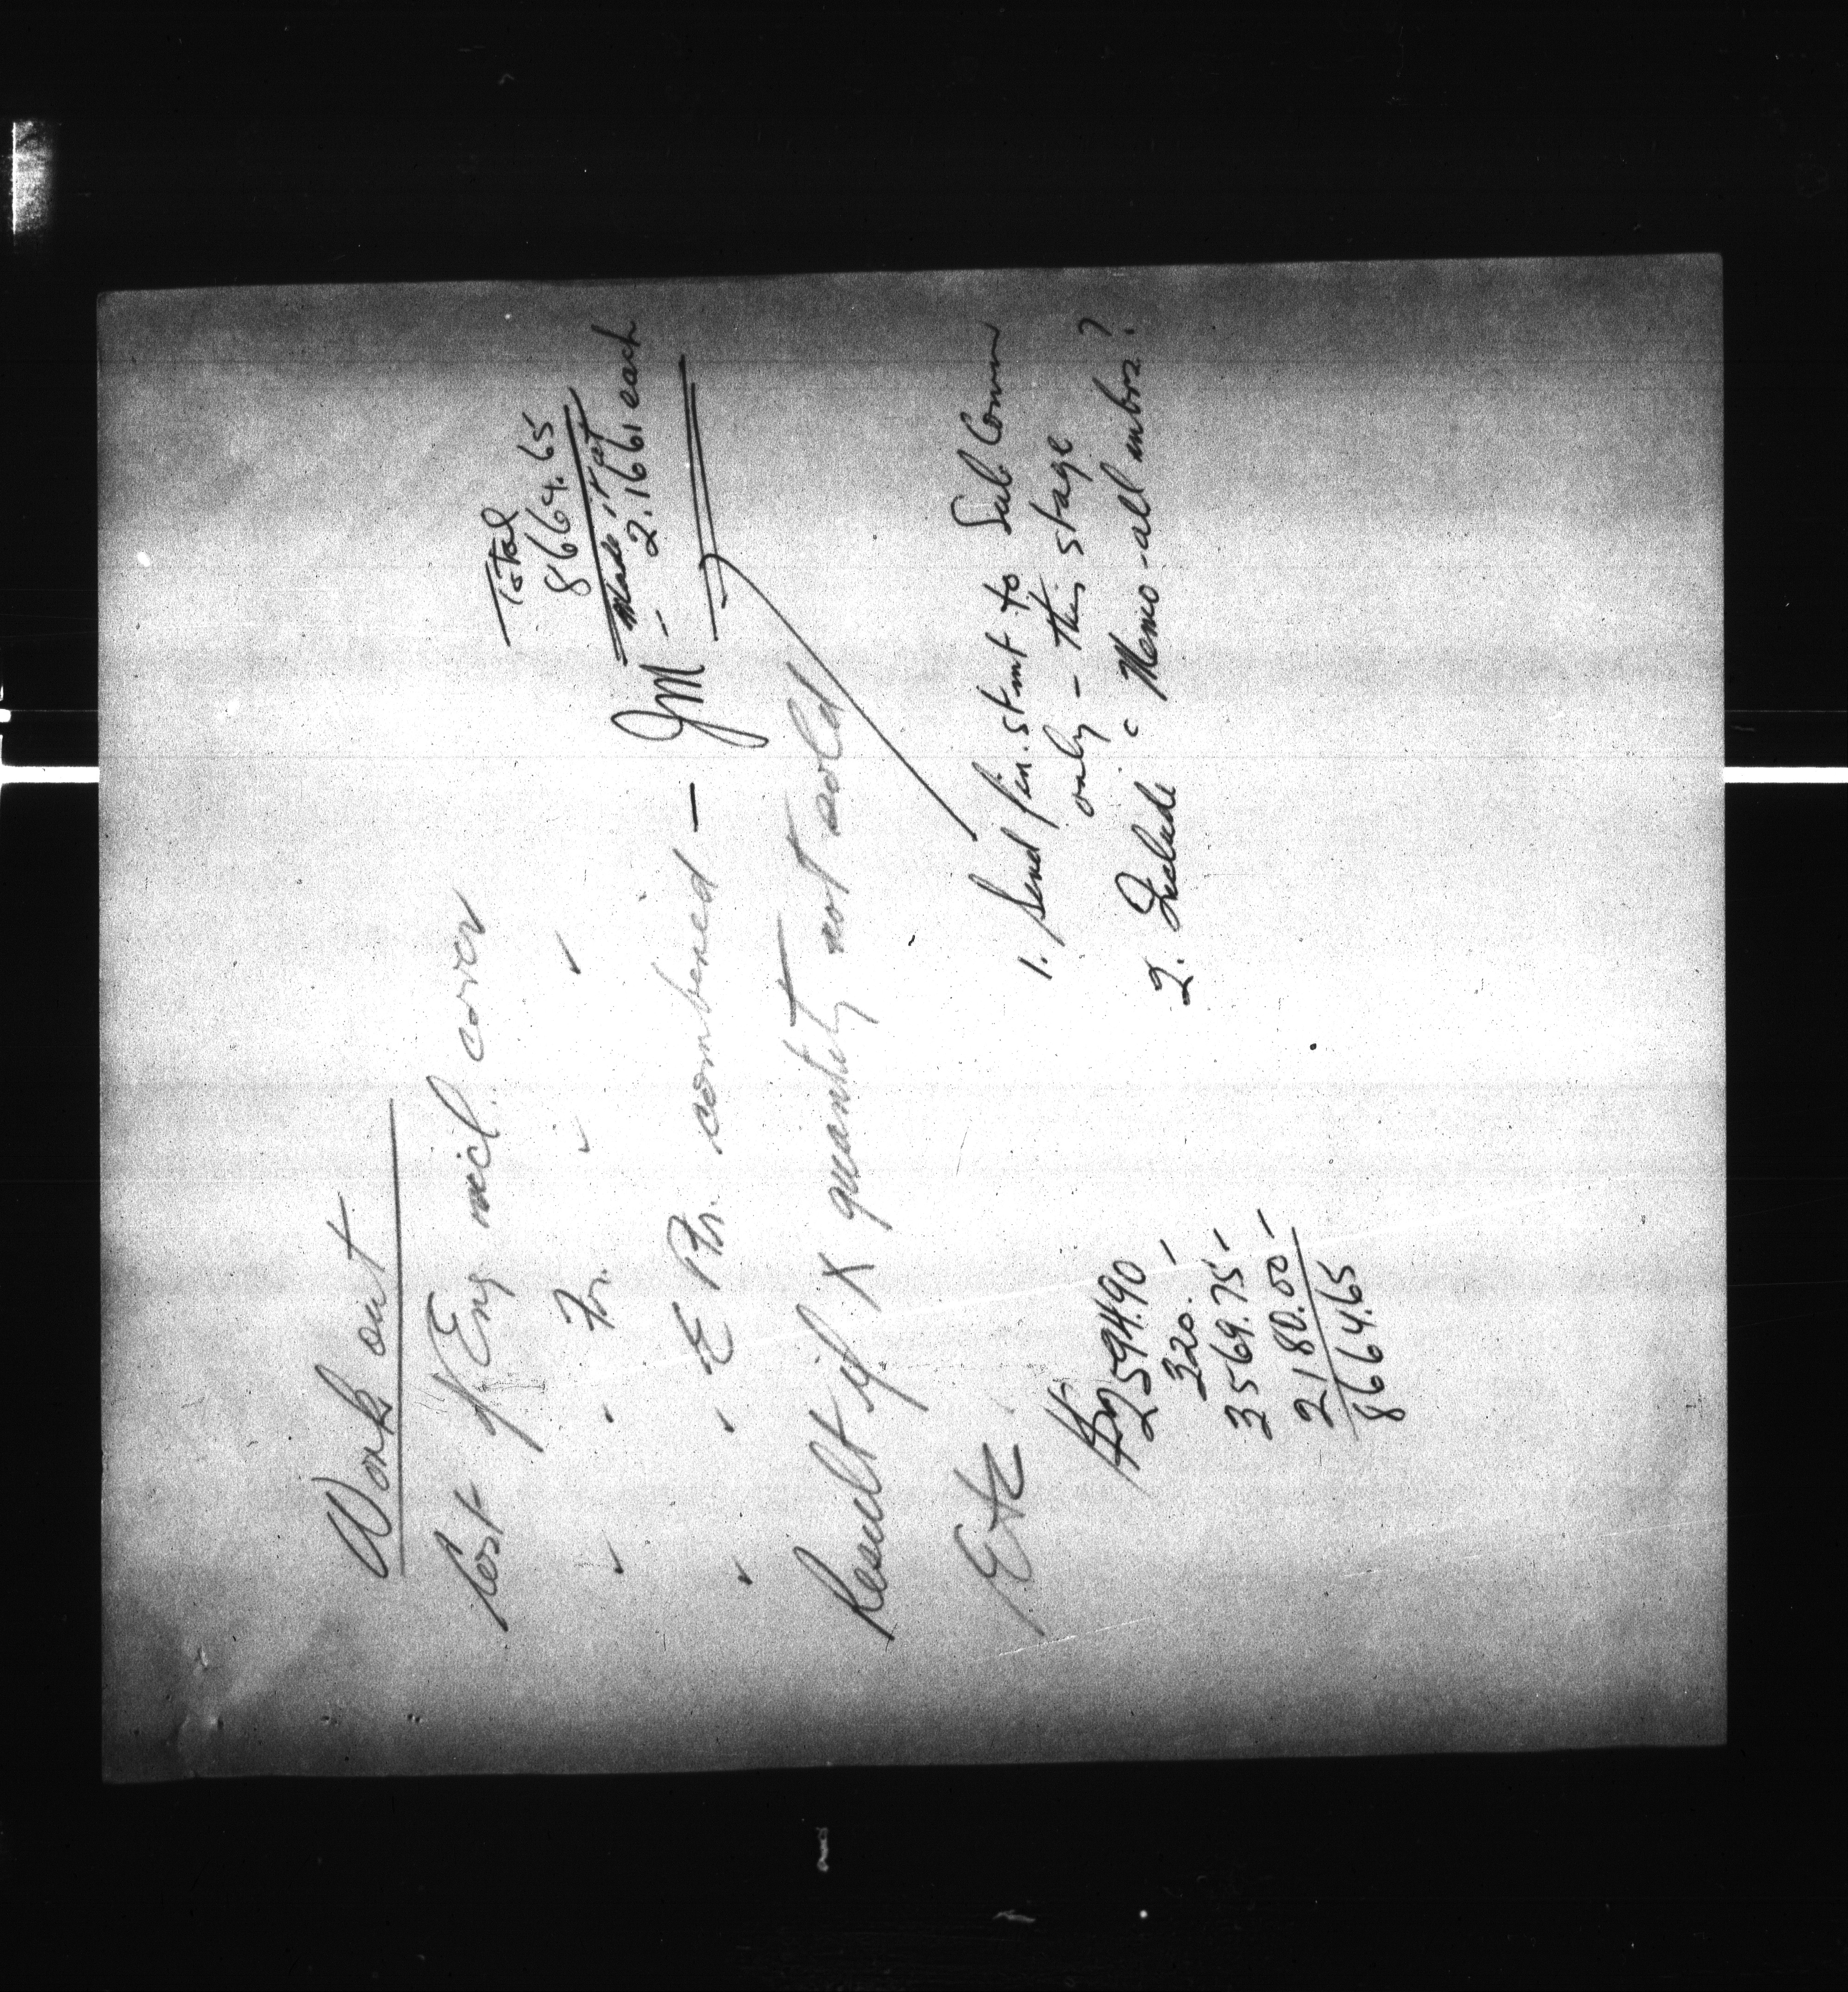 Work out
Cost of Eng incl. cover
" " Fr. " "
" " E & Fr. combined — JM
Total
8664.65
Made it at
— 2.1661 each
Result if X quantity not sold
Etc
1. Send fin. stmt to Sub Comm
only - this stage
2. Include c Memo - all mbrs?
2594.90
320. —
3569.75 —
2180.00 —
8664.65